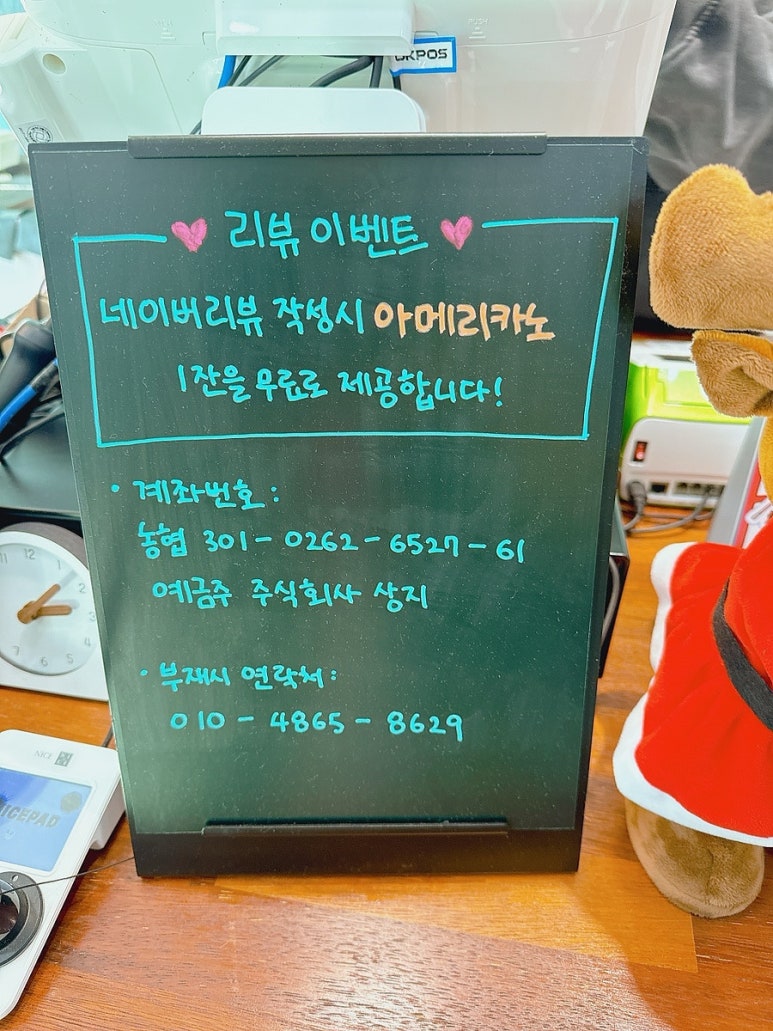 OKPOS
리뷰 이벤트
네이버리뷰 작성시 아메리카노
1잔을 무료로 제공합니다!
• 계좌번호 :
농협 301 - 0262 - 6527 - 61
예금주 주식회사 상지
• 부재시 연락처 :
010 - 4865 - 8629
NICE
NICEPAD